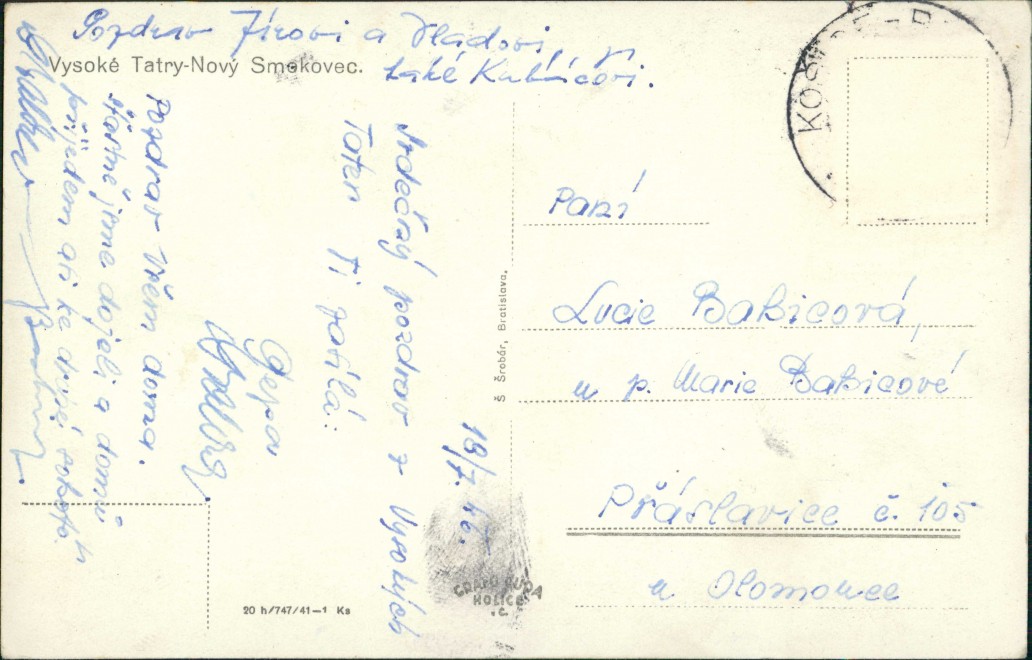 Pozdrav Jírovi a Vláďovi,
také Kubíčovi.
Vysoké Tatry-Nový Smokovec.
18/7. 46.
Srdečný pozdrav z Vysokých
Tater Ti zasílá:
Pepa
Pozdrav všem doma.
šťastně jsme dojeli a domů
přijedem asi ke druhé
Paní
Lucie Babicová,
u p. Marie Babicové
Přáslavice č. 105
u Olomouce
Š Šrobár, Bratislava.
20 h/747/41—1 Ks
HOLICE